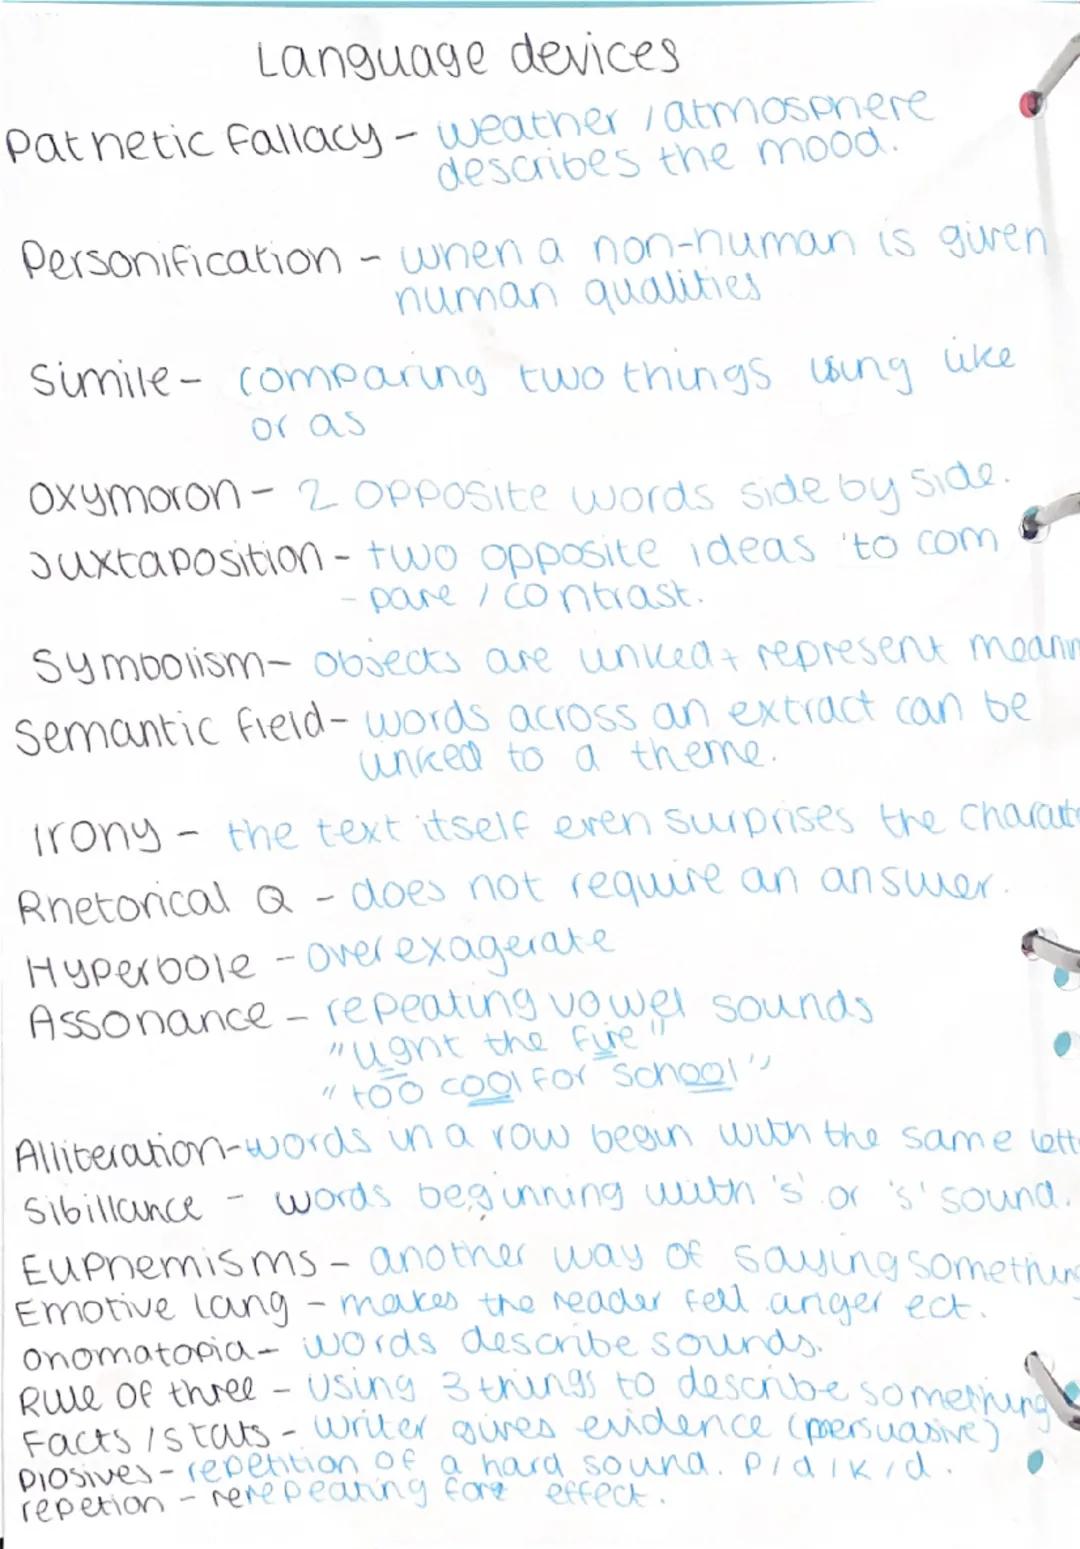 Language devices
Pathetic fallacy - weather / atmosphere
describes the mood.
Personification - when a non-human is given
human qualities
Simile - comparing two things using like
or as
Oxymoron - 2 opposite words side by side.
Juxtaposition - two opposite ideas to com
- pare / contrast.
Symbolism - objects are linked + represent meanin
Semantic field - words across an extract can be
linked to a theme.
Irony - the text itself even surprises the
Rhetorical Q - does not require an answer.
Hyperbole - over exagerate
Assonance - repeating vowel sounds
"light the fire"
"too cool for school"
Alliteration - words in a row begin with the same lett
Sibillance - words beginning with 's' or 's' sound.
Euphemisms - another way of saying somethin
Emotive lang - makes the reader fell anger ect.
onomatopia - words describe sounds.
Rule of three - using 3 things to describe something
Facts / stats - writer gives evidence (persuasive)
Plosives - repetition of a hard sound. P/d/K/d.
repetion - rerepeating for effect.